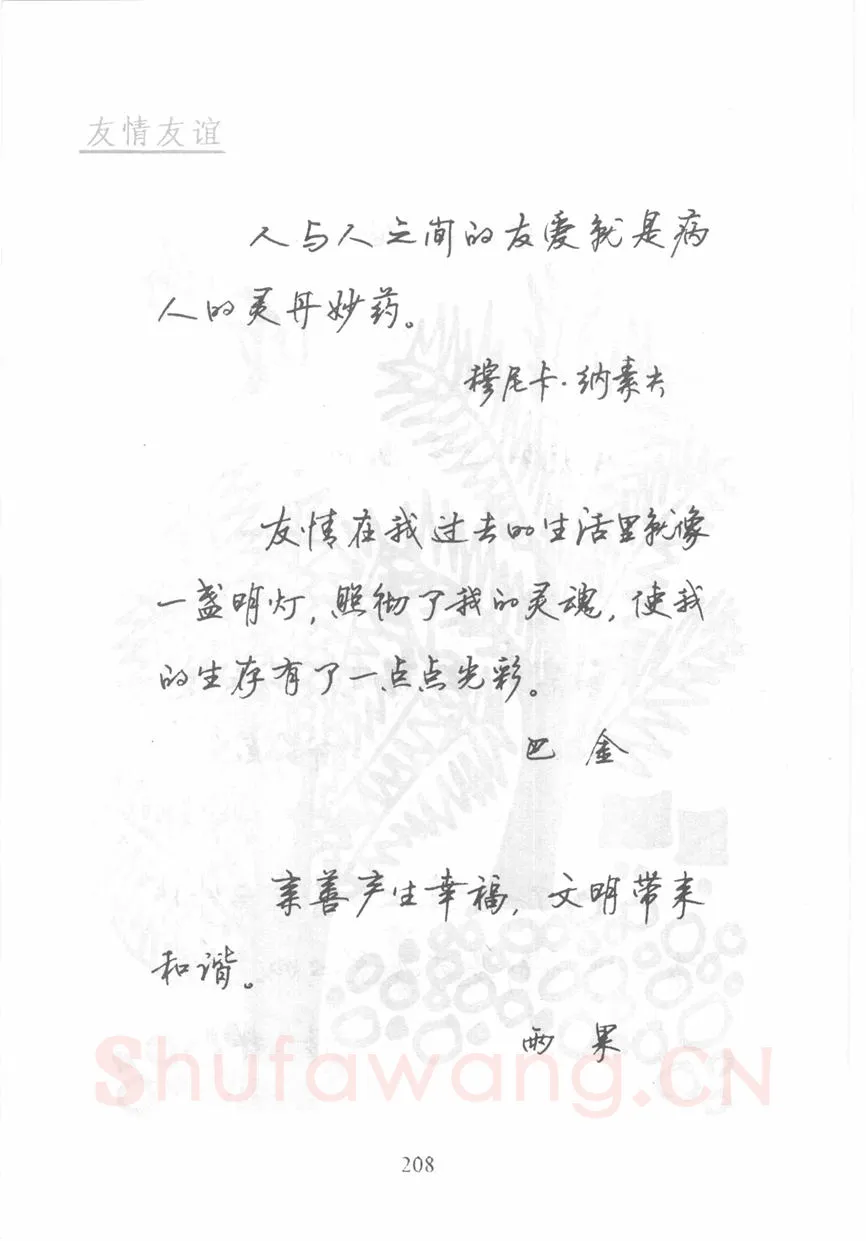 友情友谊
人与人之间的友爱就是病
人的灵丹妙药。
穆尼卡·纳素夫
友情在我过去的生活里就像
一盏明灯，照彻了我的灵魂，使我
的生存有了一点点光彩。
巴金
亲善产生幸福，文明带来
和谐。
雨果
Shufawang.CN
208